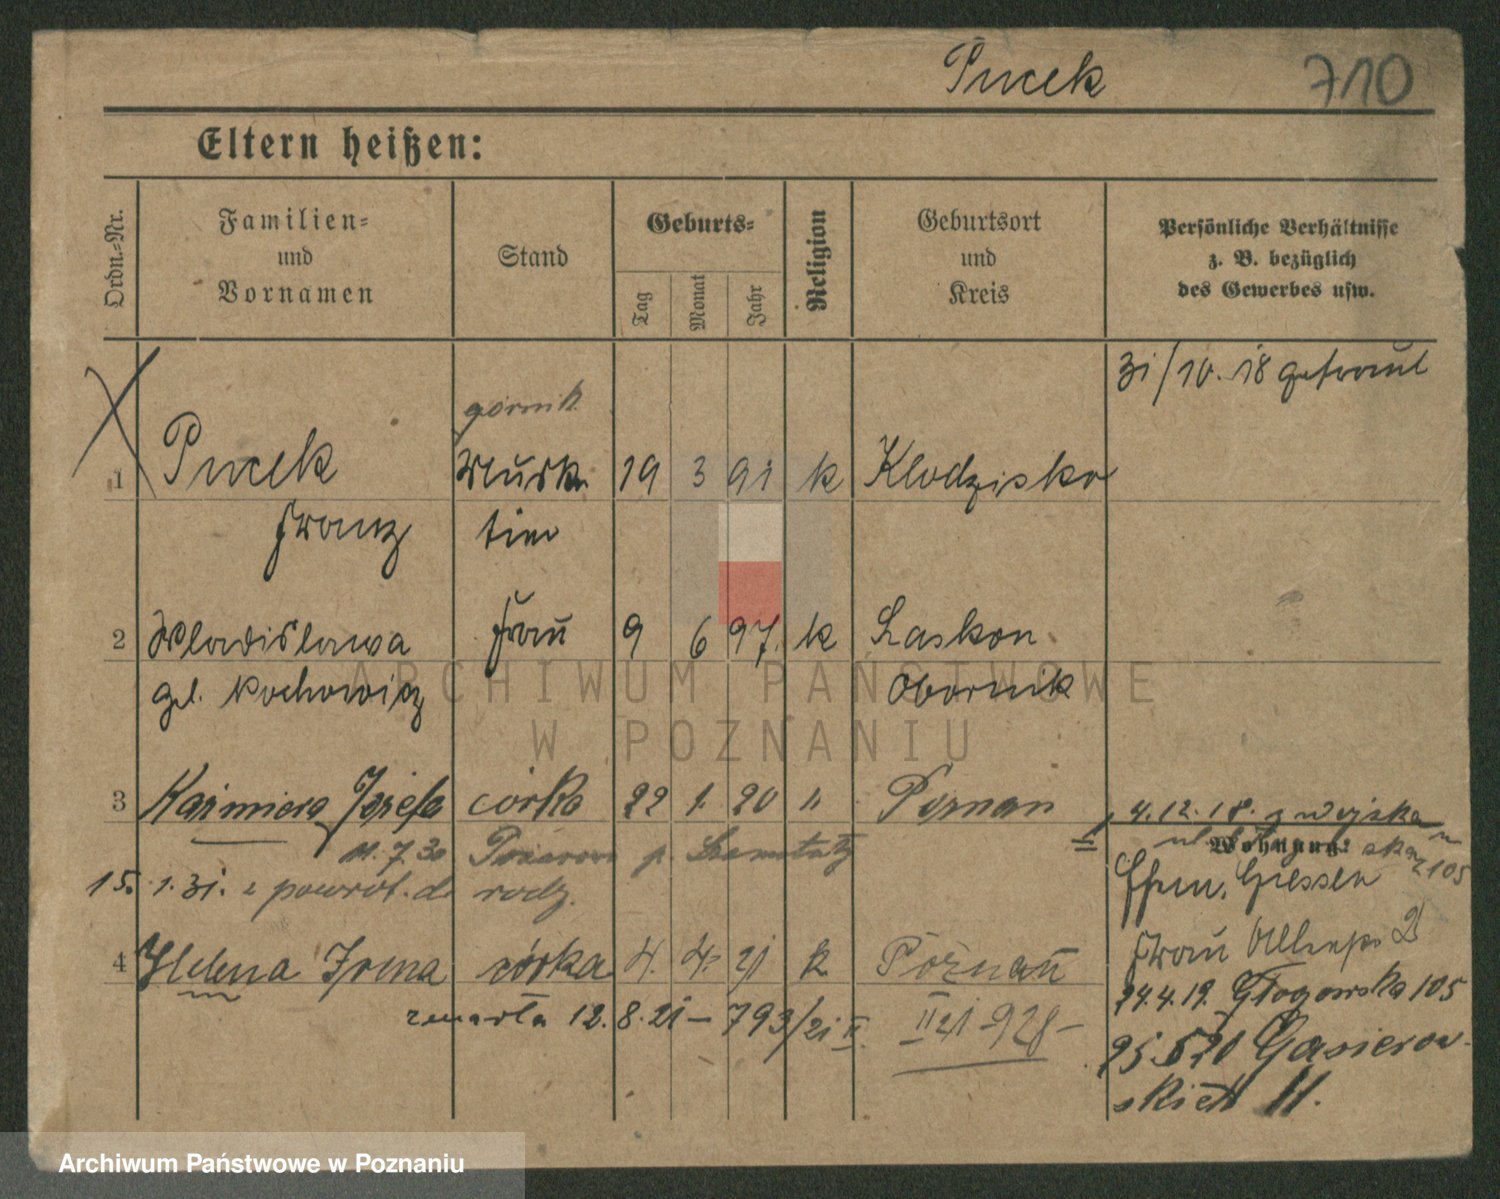 Pucek 710
Eltern heißen:
Ordn.-Nr.
Familien-
und
Vornamen
Stand
Geburts-
Tag
Monat
Jahr
Religion
Geburtsort
und
Kreis
Persönliche Verhältnisse
z. B. bezüglich
des Gewerbes usw.
31/10.18 getraut
górnik
1 Pucek 19 3 91 k Klodzisko
Franz
2 Wladislawa Frau 9 6 97. k Laskon
Obornik
3 Kazimiera Józefa córka 22 1. 20 " Poznan
4.12.18. z wojska
Wohnung:
11.7.30
15. 1.31. z powrót. do rodz.
Essen, Giessen
4 Helena Irena córka 4. 4. 21 k Poznań
Frau
24.4.19. Głogowska 105
zmarła 12.8.21 – 793/21 II.
II 21 928 –
25.5.20 Gąsierow-
skich 11.
ARCHIWUM PAŃSTWOWE
W POZNANIU
Archiwum Państwowe w Poznaniu